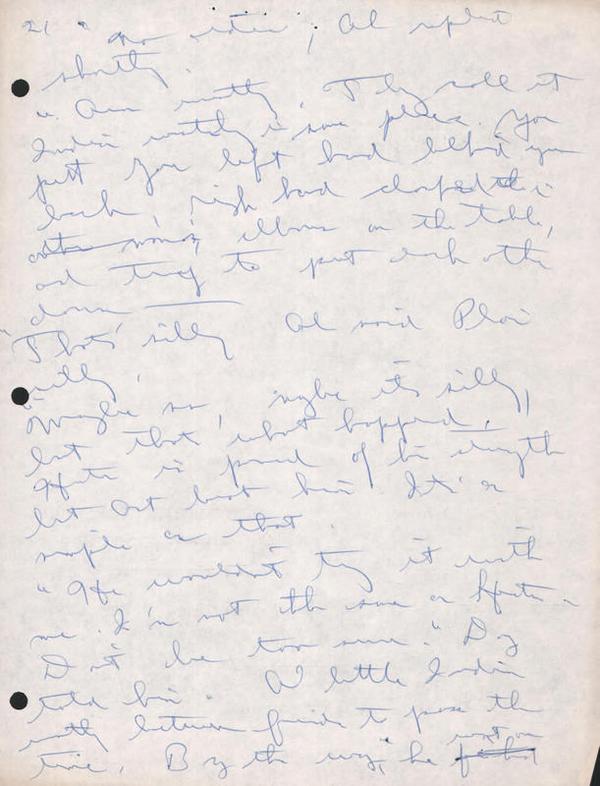 21 " no notice", Al replied
shortly.
" Arm wrestling. They call it
Indian wrestling in some places. You
put your left hand behind your
back, right hand clasped the
other man's, elbows on the table,
and try to put each other
down
"That's silly Al said Plain
silly.
"Maybe so, maybe its silly,
but that what happened.
is proud of his strength
but Art beat him. Its as
simple as that.
"He wouldn't try it with
me. I'm not the same as
Don't be too sure."
told him. A little Indian
between friends to pass the
time. By the way," he went on